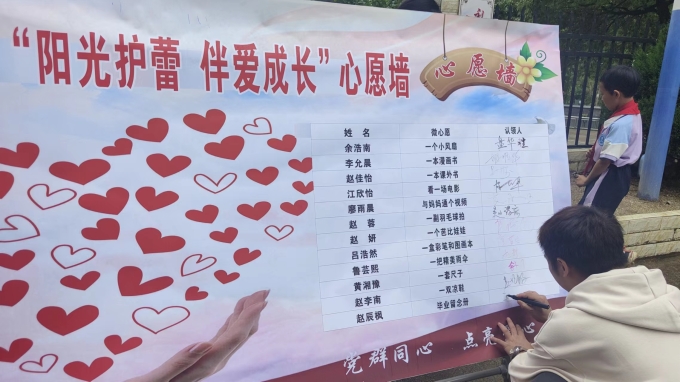 “阳光护蕾 伴爱成长”心愿墙
心愿墙
姓名 微心愿 认领人
余浩南 一个小风扇
李允晨 一本漫画书
赵佳怡 一本课外书
江欣怡 看一场电影
廖雨晨 与妈妈通个视频
赵蓉 一副羽毛球拍
赵妍 一个芭比娃娃
吕浩然 一盒彩笔和图画本
鲁芸熙 一把精美雨伞
黄湘豫 一套尺子
赵李南 一双凉鞋
赵辰枫 毕业留念册
党群同心 点亮